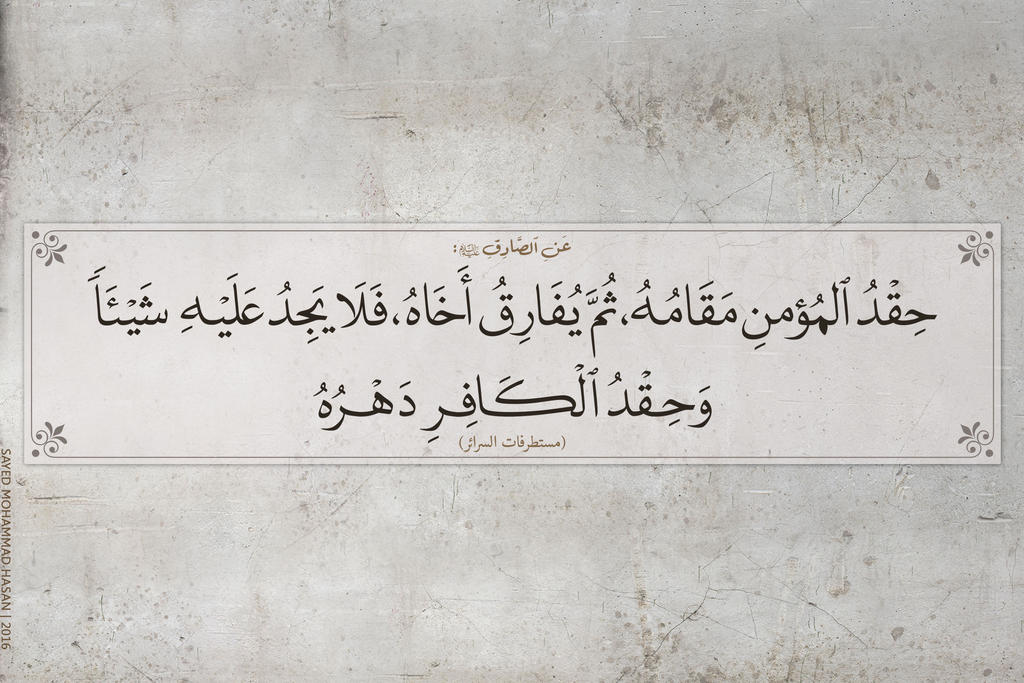 عَنِ ٱلصَّادِقِ عليه السلام:
حِقْدُ ٱلْمُؤمنِ مَقَامُهُ، ثُمَّ يُفَارِقُ أَخَاهُ، فَلَا يَجِدُ عَلَيْهِ شَيْئَاً
وَحِقْدُ ٱلْكَافِرِ دَهْرُهُ
(مستطرفات السرائر)
SAYED MOHAMMAD HASAN | 2016